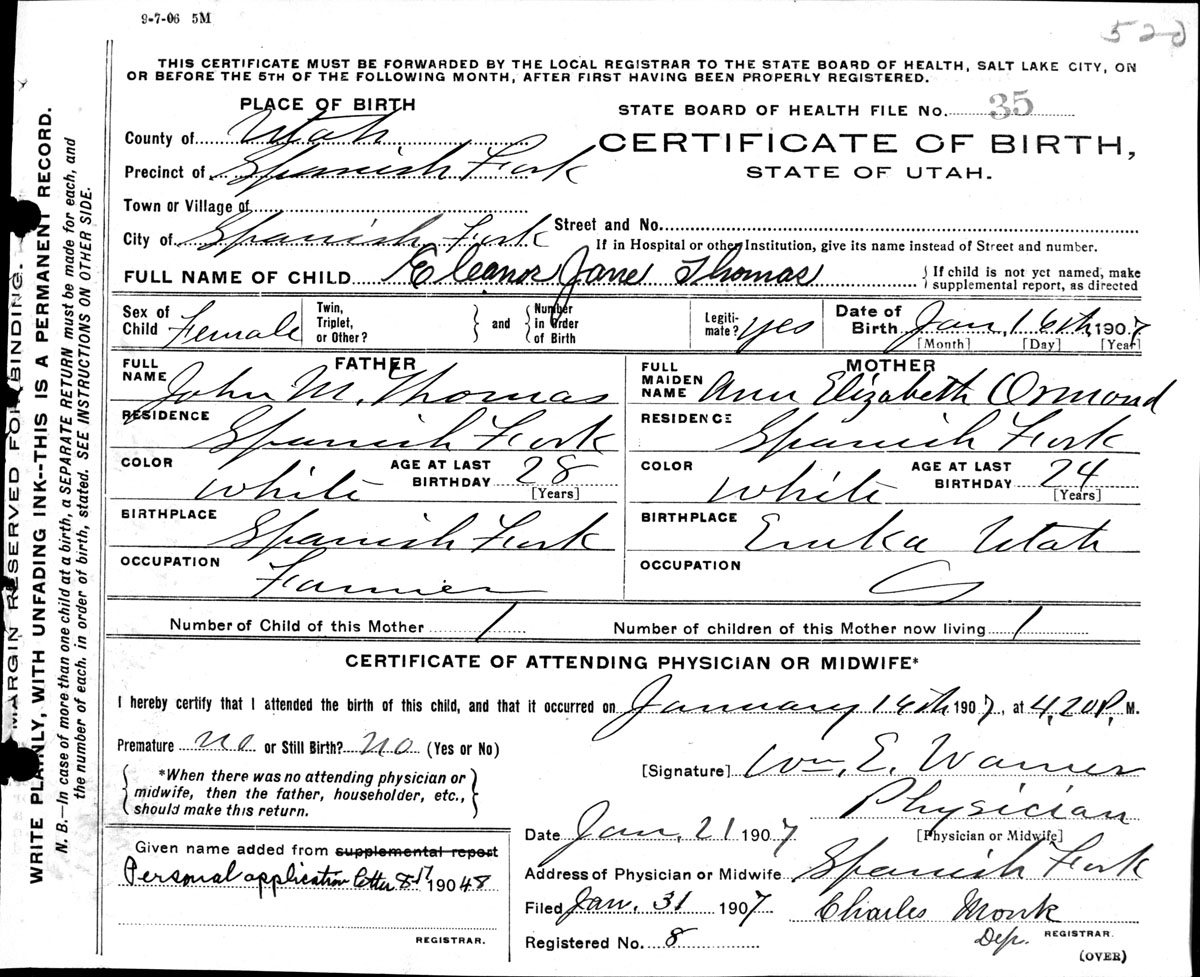 9-7-06 5M
520
THIS CERTIFICATE MUST BE FORWARDED BY THE LOCAL REGISTRAR TO THE STATE BOARD OF HEALTH, SALT LAKE CITY, ON
OR BEFORE THE 5TH OF THE FOLLOWING MONTH, AFTER FIRST HAVING BEEN PROPERLY REGISTERED.
MARGIN RESERVED FOR BINDING.
WRITE PLAINLY, WITH UNFADING INK--THIS IS A PERMANENT RECORD.
N. B.—In case of more than one child at a birth, a SEPARATE RETURN must be made for each, and
the number of each, in order of birth, stated. SEE INSTRUCTIONS ON OTHER SIDE.
PLACE OF BIRTH
County of Utah
Precinct of Spanish Fork
Town or Village of
City of Spanish Fork
STATE BOARD OF HEALTH FILE No. 35
CERTIFICATE OF BIRTH,
STATE OF UTAH.
Street and No.
If in Hospital or other Institution, give its name instead of Street and number.
FULL NAME OF CHILD Eleanor Jane Thomas
If child is not yet named, make
supplemental report, as directed
Sex of Child Female
Twin, Triplet, or Other?
and
Number in Order of Birth
Legiti- mate? yes
Date of Birth Jan, 16th, 1907
[Month] [Day] [Year]
FATHER
FULL NAME John M. Thomas
RESIDENCE Spanish Fork
COLOR White AGE AT LAST BIRTHDAY 28
[Years]
BIRTHPLACE Spanish Fork
OCCUPATION Farmer
MOTHER
FULL MAIDEN NAME Ann Elizabeth Ormond
RESIDENCE Spanish Fork
COLOR White AGE AT LAST BIRTHDAY 24
[Years]
BIRTHPLACE Eruka Utah
OCCUPATION
Number of Child of this Mother 1
Number of children of this Mother now living 1
CERTIFICATE OF ATTENDING PHYSICIAN OR MIDWIFE*
I hereby certify that I attended the birth of this child, and that it occurred on January 16th 1907, at 4,20 P. M.
Premature no or Still Birth? no (Yes or No)
*When there was no attending physician or
midwife, then the father, householder, etc.,
should make this return.
[Signature] Wm. E. Warner
Physician
[Physician or Midwife]
Date Jan, 21 1907
Address of Physician or Midwife Spanish Fork
Filed Jan, 31 1907 Charles Monk
Dep. REGISTRAR.
Registered No. 8
(OVER)
Given name added from supplemental report
Personal application letter 8-17 19048
REGISTRAR.